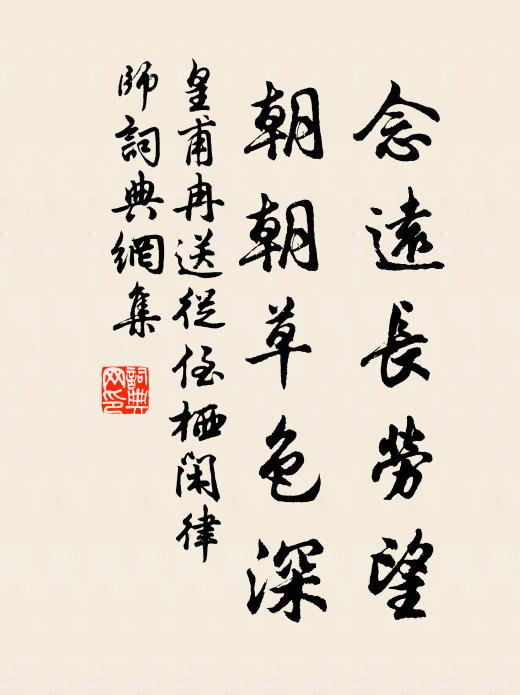 念遠長勞望
朝朝草色深
皇甫冉送從侄栖閑律
師詞典網集
詞典
网印